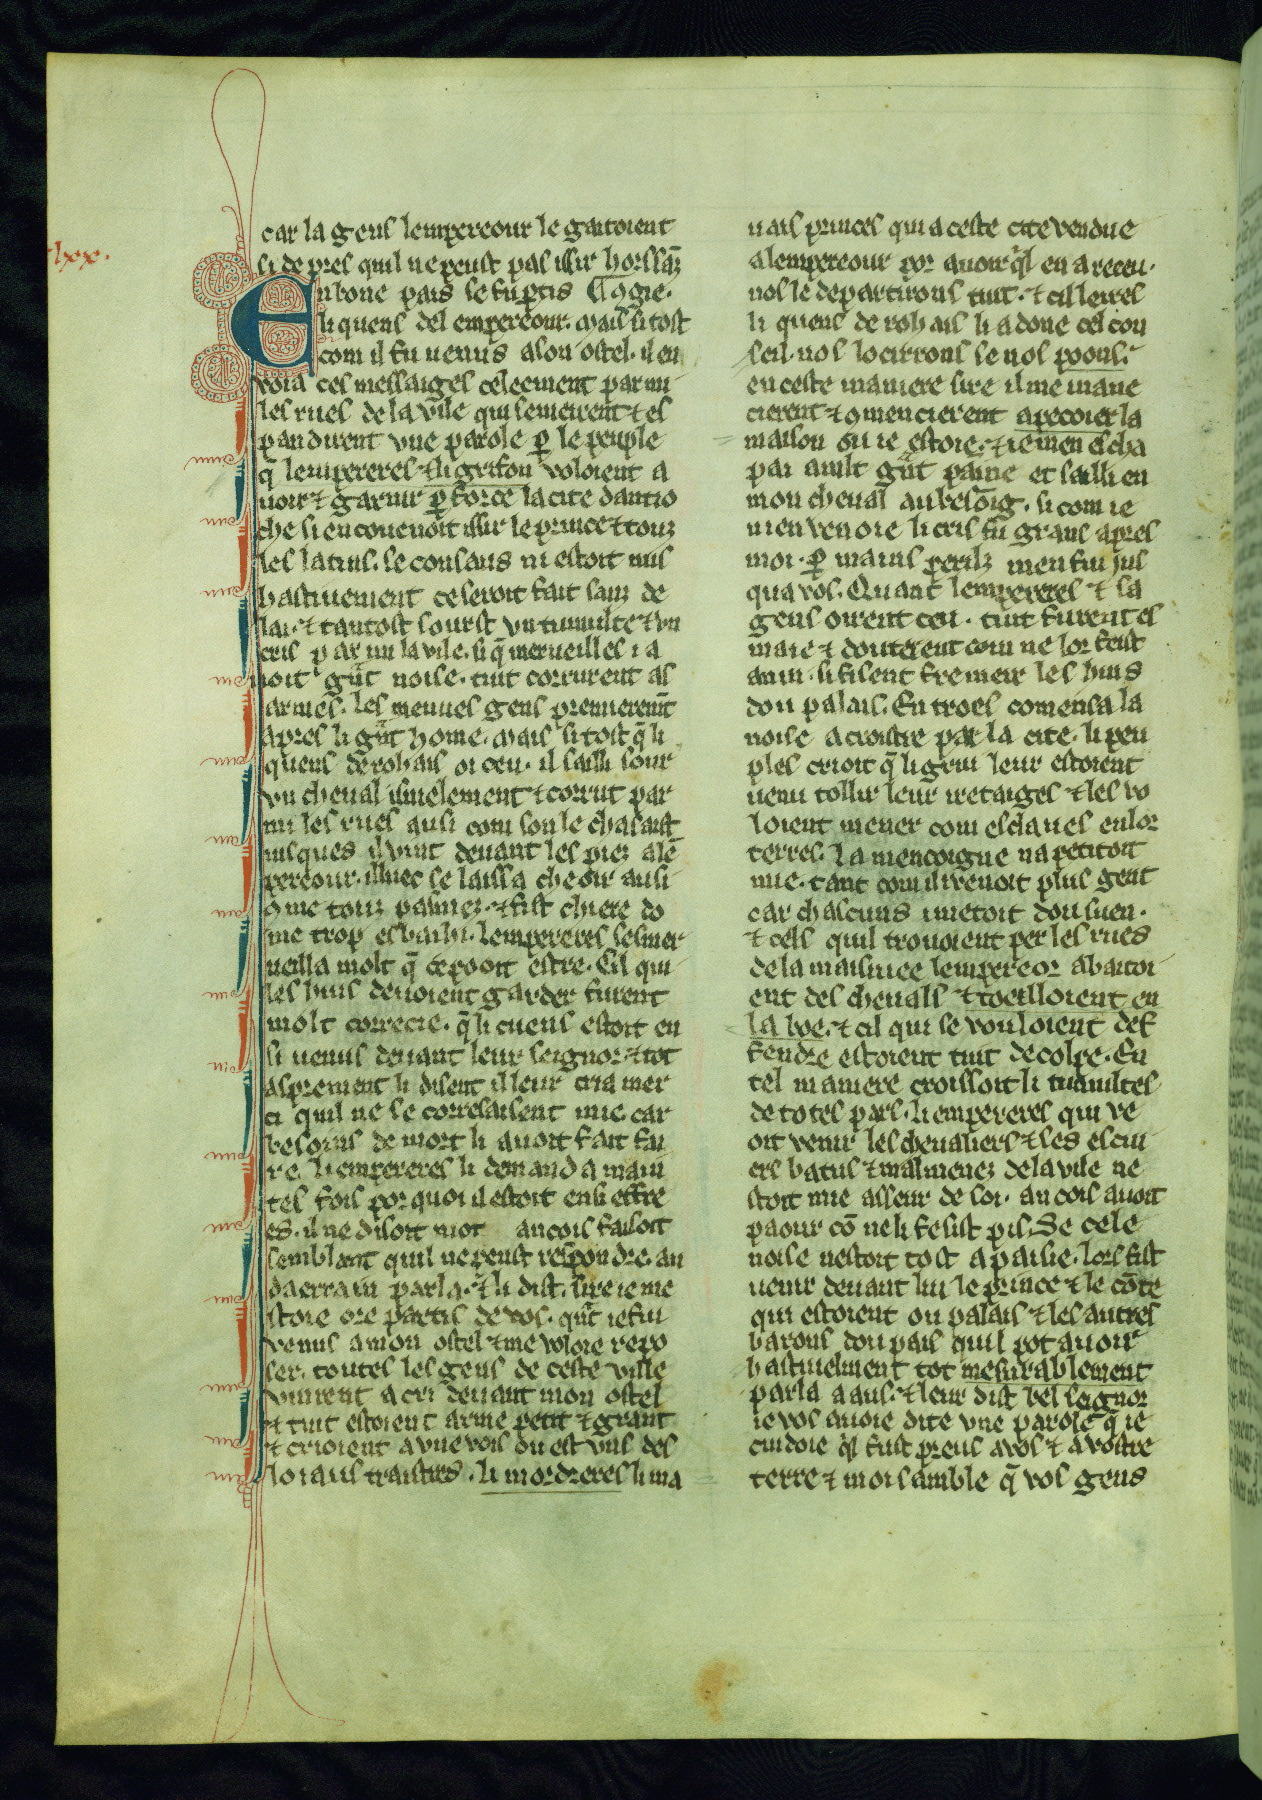 lxx.
car la gens lempereour le gaitoient
si de pres quil ne peust pas issir hors sãz
Enbone pais se fu ptis Cõgie.
li quens del empereour. mais si tost
com il fu uenus a son ostel. il en
uoia ces messaiges celeement parmi
les rues de la vile qui semeirent ⁊ es
pandirent vne parole ꝑ le peuple
q̃ lempereres ⁊ li grifon voloient a
uoir ⁊ garnir ꝑ force la cite dantio
che si en couenoit issir le prince ⁊ touz
les latins. se consaus ni estoit mis
hastiuement ce seroit fait sanz de
lai. ⁊ tantost sourst vn tumulte ⁊ vn
cris parmi la vile. si q̃ merueilles i a
uoit gñt noise. tuit corrurent as
armes. les menues gens premieremt̃
apres li gñt home. mais si tost q̃ li
quens de rohais oi ceu. il sailli sour
vn cheual isnelement ⁊ corrut par
mi les rues ausi com son le chasast
iusques il vint deuant les piez a lẽ
pereour. illuec se laissa cheoir ausi
9me touz pasmez. ⁊ fist chiere do
me trop esbaihi. lempereres sesmer
ueilla molt q̃ ce pooit estre. Cil qui
les huis deuoient garder furent
molt correcie. q̃ li cuens estoit en
si uenus deuant leur seignor. ⁊ tot
asprement li disent il leur cria mer
ci quil ne se corresaisent mie. car
besoins de mort li auoit fait fai
re. li empereres li demanda main
tes fois por quoi il estoit ensi effre
es. il ne disoit mot ancois faisoit
semblant quil ne peust respondre. au
daerrain parla. ⁊ li dist. sire ie me
stoie ore partis de vos. qñt ie fui
venus a mon ostel ⁊ me voloie repo
ser. toutes les gens de ceste ville
vinrent a cri deuant mon ostel
⁊ tuit estoient arme petit ⁊ grant
⁊ crioient a vne vois ou est vns des
loiaus traistres. li mordreres li ma
uais princes qui a ceste cite vendue
a lempereour por auoir q̃l en a receu.
nos le departirons tuit. ⁊ cil leires
li quens de rohais li a done cel con
seil. nos locirrons se nos poons.
en ceste maniere sire il me mane
cierent ⁊ 9mencierent a pecoier la
maison ou ie estoie. ⁊ ie men escha
pai a mlt gñt paine et sailli en
mon cheual au besoig. si com ie
men venoie li cris fu grans apres
moi. ꝑ mains perilz men fui jus
qua vos. Quant lempereres ⁊ sa
gens oirent ceu. tuit furent es
maie ⁊ douterent com ne lor feist
anui. si fisent fremeir les huis
dou palais. Entroes comensa la
noise a croistre par la cite. li peu
ples crioit q̃ li griu leur estoient
uenu tollir leur iretaiges ⁊ les vo
loient mener com esclaues en lor
terres. La mencoigne napetitoit
mie. tant com il venoit plus gent
car chascuns i metoit dou suen.
⁊ cels quil trouoient per les rues
de la maisnie lempereor abatoi
ent des cheuals ⁊ toeilloient en
la boe. ⁊ cil qui se vouloient def
fendre estoient tuit decolpe. En
tel maniere croissoit li tumultes
de totes pars. li empereres qui ve
oit venir les cheualiers ⁊ les escui
ers batus ⁊ malmenez de la vile ne
stoit mie asseur de soi. ancois auoit
paour cõ ne li fesist pis. Se cele
noise nestoit tost apaisie. lors fist
uenir deuant lui le prince ⁊ le cõte
qui estoient ou palais ⁊ les autres
barons dou pais quil pot auoir
hastiuelment tot mesurablement
parla a aus. ⁊ leur dist bel seignor
ie vos auoie dite vne parole q̃ ie
cuidoie q̃l fust preus a vos ⁊ a vostre
terre ⁊ moi samble q̃ vos gens